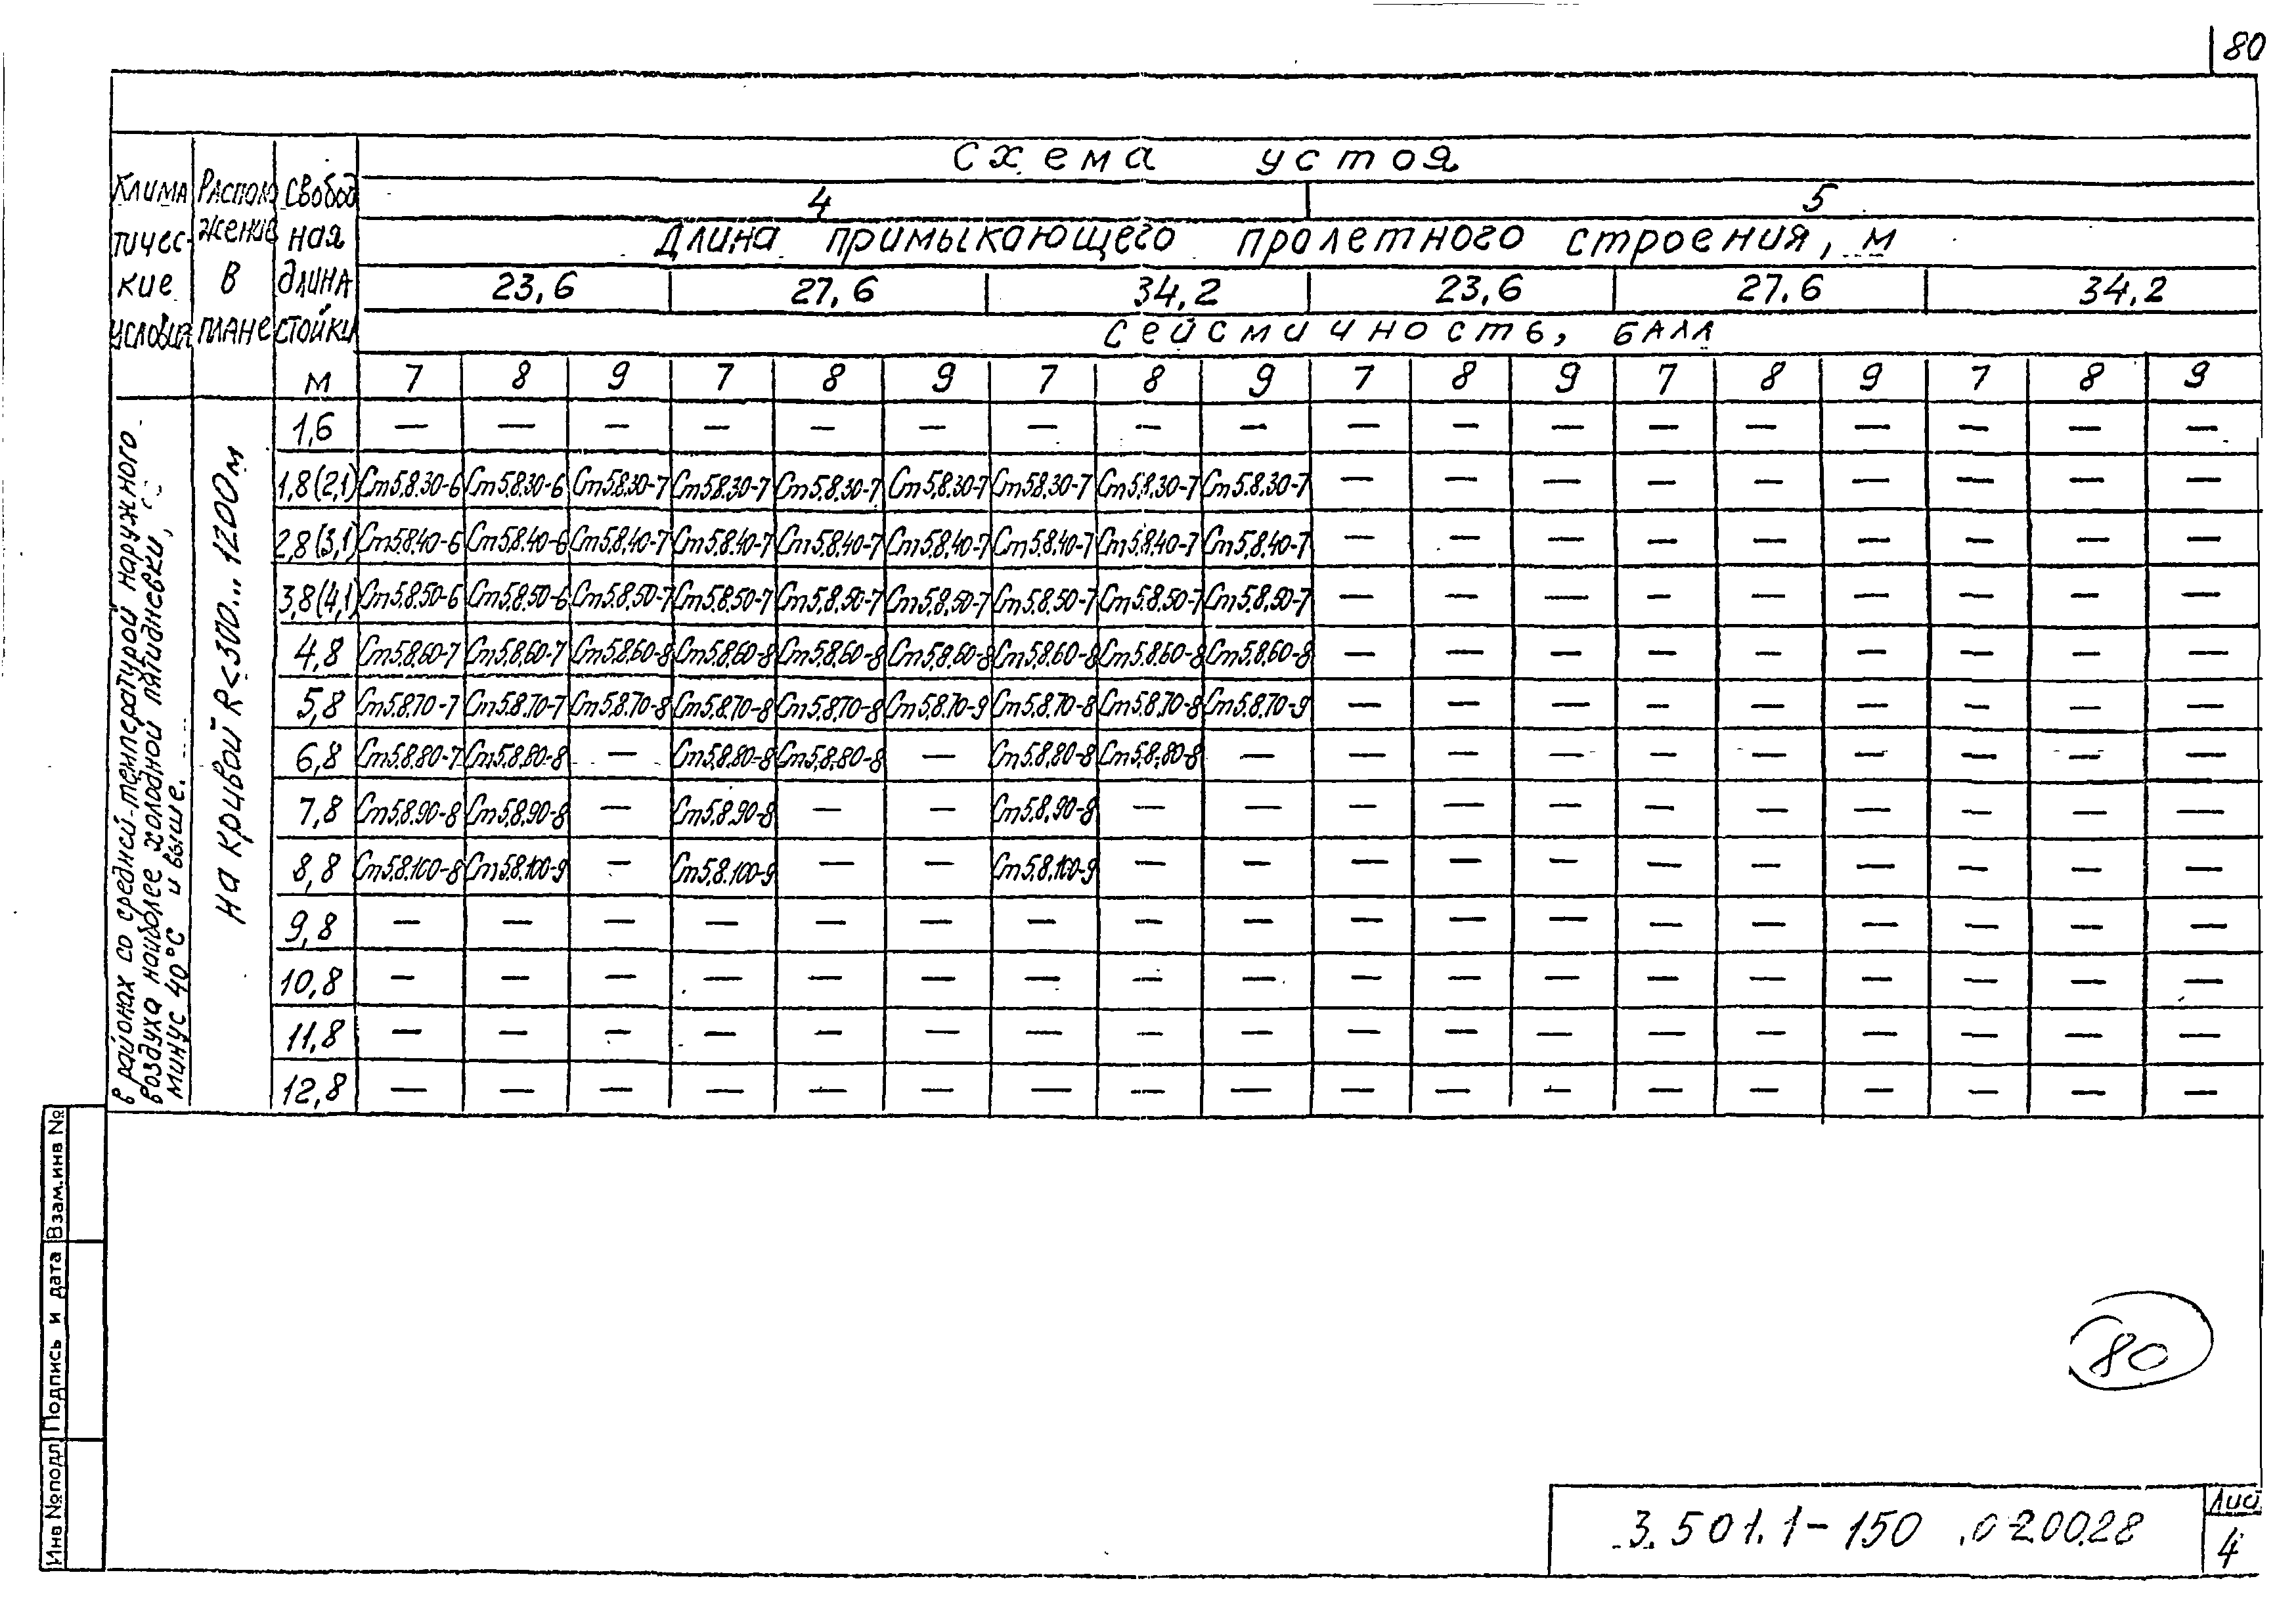 80
Схема устоя
Клима Располо Свобод
4 5
тичес- жение ная
Длина примыкающего пролетного строения, м
кие в длина
23,6 27,6 34,2 23,6 27,6 34,2
условия плане стойки
Сейсмичность, балл
м 7 8 9 7 8 9 7 8 9 7 8 9 7 8 9 7 8 9
в районах со средней температурой наружного
воздуха наиболее холодной пятидневки,
минус 40°С и выше.
на кривой R<300... 1200м
1,6 — — — — — — — — — — — — — — — — — —
1,8(2,1) Ст5.8.30-6 Ст5.8.30-6 Ст5.8.30-7 Ст5.8.30-7 Ст5.8.30-7 Ст5.8.30-7 Ст5.8.30-7 Ст5.8.30-7 Ст5.8.30-7 — — — — — — — — —
2,8(3,1) Ст5.8.40-6 Ст5.8.40-6 Ст5.8.40-7 Ст5.8.40-7 Ст5.8.40-7 Ст5.8.40-7 Ст5.8.40-7 Ст5.8.40-7 Ст5.8.40-7 — — — — — — — — —
3,8(4,1) Ст5.8.50-6 Ст5.8.50-6 Ст5.8.50-7 Ст5.8.50-7 Ст5.8.50-7 Ст5.8.50-7 Ст5.8.50-7 Ст5.8.50-7 Ст5.8.50-7 — — — — — — — — —
4,8 Ст5.8.60-7 Ст5.8.60-7 Ст5.8.60-8 Ст5.8.60-8 Ст5.8.60-8 Ст5.8.60-8 Ст5.8.60-8 Ст5.8.60-8 Ст5.8.60-8 — — — — — — — — —
5,8 Ст5.8.70-7 Ст5.8.70-7 Ст5.8.70-8 Ст5.8.70-8 Ст5.8.70-8 Ст5.8.70-9 Ст5.8.70-8 Ст5.8.70-8 Ст5.8.70-9 — — — — — — — — —
6,8 Ст5.8.80-7 Ст5.8.80-8 — Ст5.8.80-8 Ст5.8.80-8 — Ст5.8.80-8 Ст5.8.80-8 — — — — — — — — — —
7,8 Ст5.8.90-8 Ст5.8.90-8 — Ст5.8.90-8 — — Ст5.8.90-8 — — — — — — — — — — —
8,8 Ст5.8.100-8 Ст5.8.100-9 — Ст5.8.100-9 — — Ст5.8.100-9 — — — — — — — — — — —
9,8 — — — — — — — — — — — — — — — — — —
10,8 — — — — — — — — — — — — — — — — — —
11,8 — — — — — — — — — — — — — — — — — —
12,8 — — — — — — — — — — — — — — — — — —
Взам.инв №
Подпись и дата
Инв №подл
80
3.501.1-150 .0-20028
Лист
4